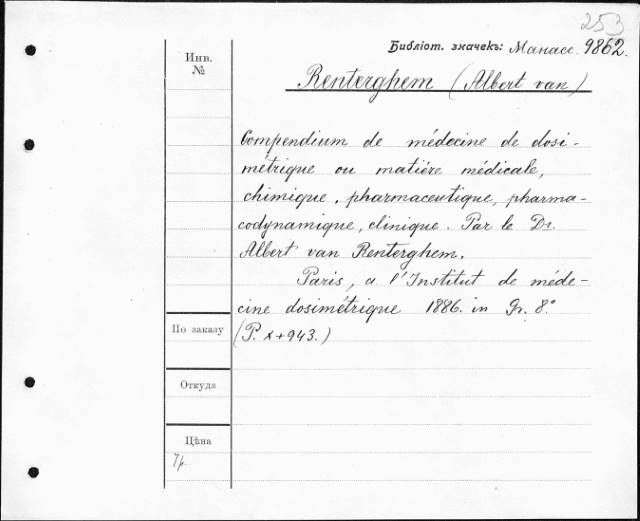 253
Библіот. значекъ: Манасе. 9862.
Инв.
№
Renterghem (Albert van)
Compendium de médecine de dosi-
métrique ou matière médicale,
chimique, pharmaceutique, pharma-
codynamique, clinique. Par le Dr.
Albert van Renterghem.
Paris, a l'Institut de méde-
cine dosimétrique 1886. in Gr. 8°
(P. x+943.)
По заказу
Откуда
Цѣна
7р.